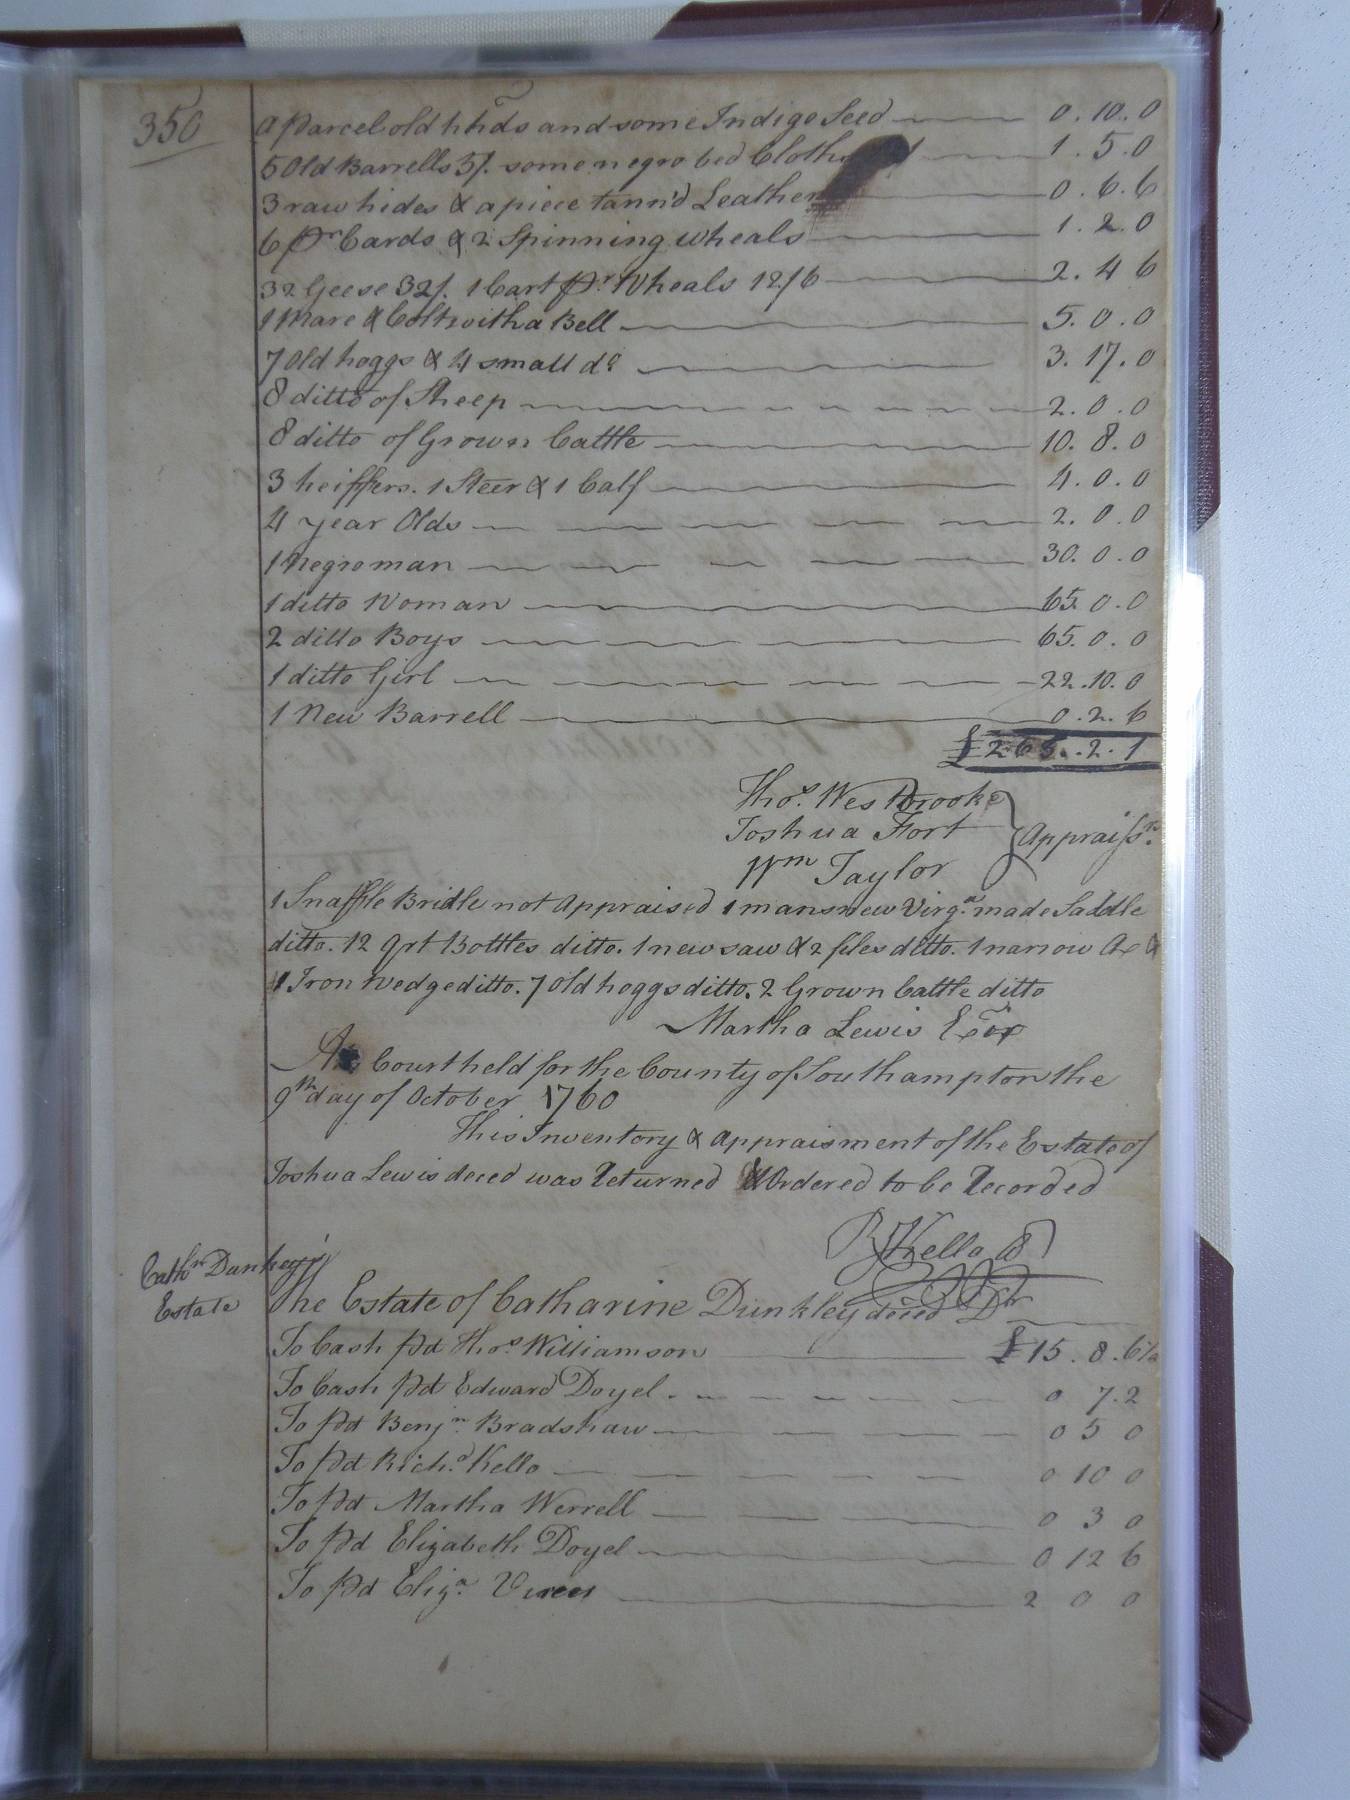 350
a parcel old hhds and some Indigo Seed 0. 10. 0
5 Old Barrells 5/. some negro bed Cloths 1. 5. 0
3 raw hides & a piece tann'd Leather 0. 6. 6
6 pr Cards & 2 Spinning wheals 1. 2. 0
32 Geese 32/. 1 Cart pr Wheals 12/6 2. 4 6
1 Mare & Colt with a Bell 5. 0. 0
7 Old hoggs & 4 small do 3. 17. 0
8 ditto of Sheep 2. 0. 0
8 ditto of Grown Cattle 10. 8. 0
3 heiffers. 1 Steer & 1 Calf 4. 0. 0
4 year Olds 2. 0. 0
1 Negro man 30. 0. 0
1 ditto Woman 65. 0. 0
2 ditto Boys 65. 0. 0
1 ditto Girl 22. 10. 0
1 New Barrell 0. 2. 6
£ 265. 2. 1
Thos. Westbrooke
Joshua Fort Appraisrs.
Wm Taylor
1 Snaffle Bridle not Appraised 1 mans new Virga. made Saddle
ditto. 12 qrt Bottles ditto. 1 new saw & 2 files ditto. 1 narrow Ax &
1 Iron wedge ditto. 7 old hoggs ditto. 2 Grown Cattle ditto
Martha Lewis Extox
At a Court held for the County of Southampton the
9th day of October 1760
This Inventory & Appraisment of the Estate of
Joshua Lewis deced was Returned & Ordered to be Recorded
R Kello
Cathn Dunkeys
Estate
The Estate of Catharine Dunkley deced Dr
To Cash pd Thos. Williamson £15. 8. 6½
To Cash pd Edward Doyel. 0 7. 2
To pd Benjn. Bradshaw 0 5 0
To pd Richd. Kello 0 10 0
To pd Martha Werrell 0 3 0
To pd Elizabeth Doyel 0 12 6
To pd Eliza. 2 0 0